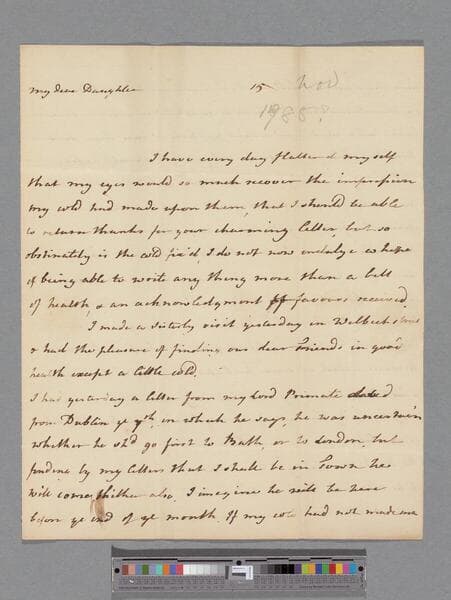 My dear Daughter 15 Nov
1785?
I have every day flatterd myself
that my eyes would so much recover the impression
my cold had made upon them, that I should be able
to return thanks for your charming letter, but so
obstinately is the cold fix'd, I do not now indulge a hope
of being able to write any thing more than a bill
of health, & an acknowledgment of favours received.
I made a sisterly visit yesterday in Welbeck street
& had the pleasure of finding our dear Friends in good
health except a little cold.
I had yesterday a letter from my Lord Primate dated
from Dublin ye 9th, in which he says, he was uncertain
whether he shd go first to Bath, or to London, but
finding by my letters that I shall be in Town he
will come thither also, I imagine he will be here
before ye end of ye month. If my cold had not made me